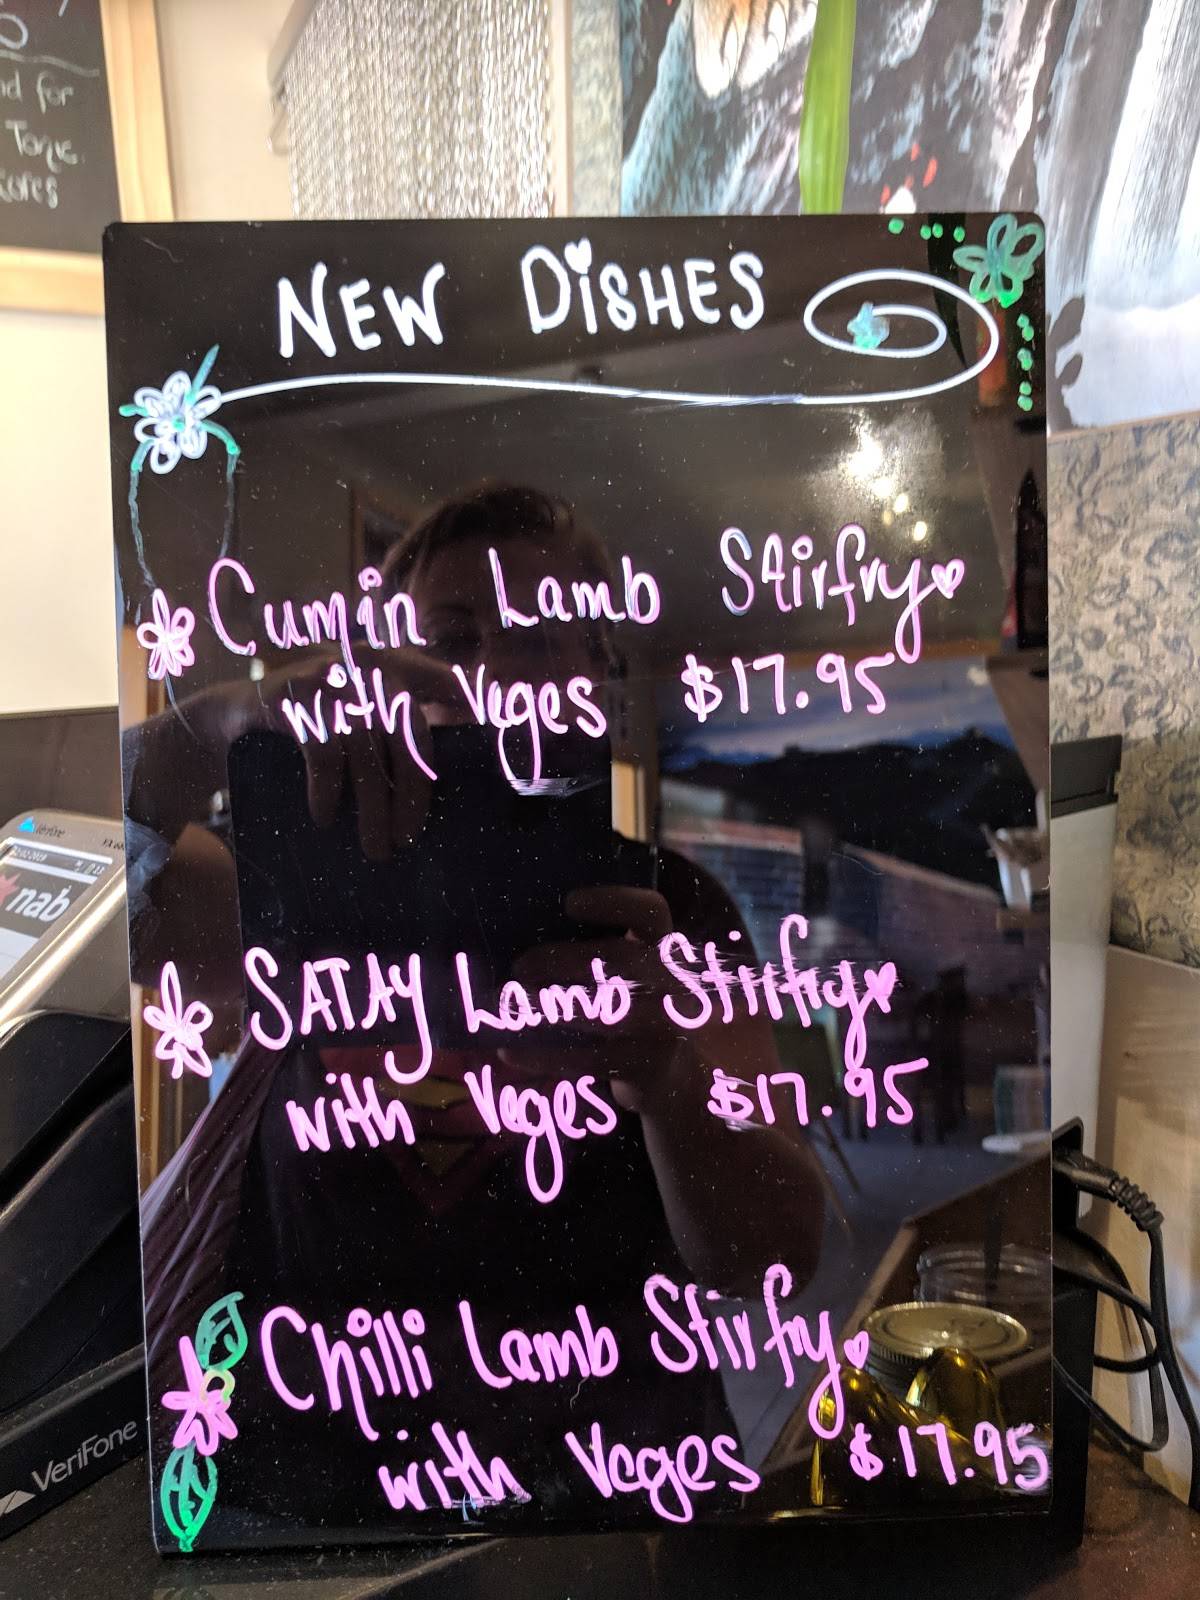 nd for
Tonic
NEW DiSHES
Cumin Lamb Stirfry
with Veges $17.95
SATAY Lamb Stirfry
with Veges $17.95
Chilli Lamb Stirfry
with Veges $17.95
VeriFone
nab
VeriFone